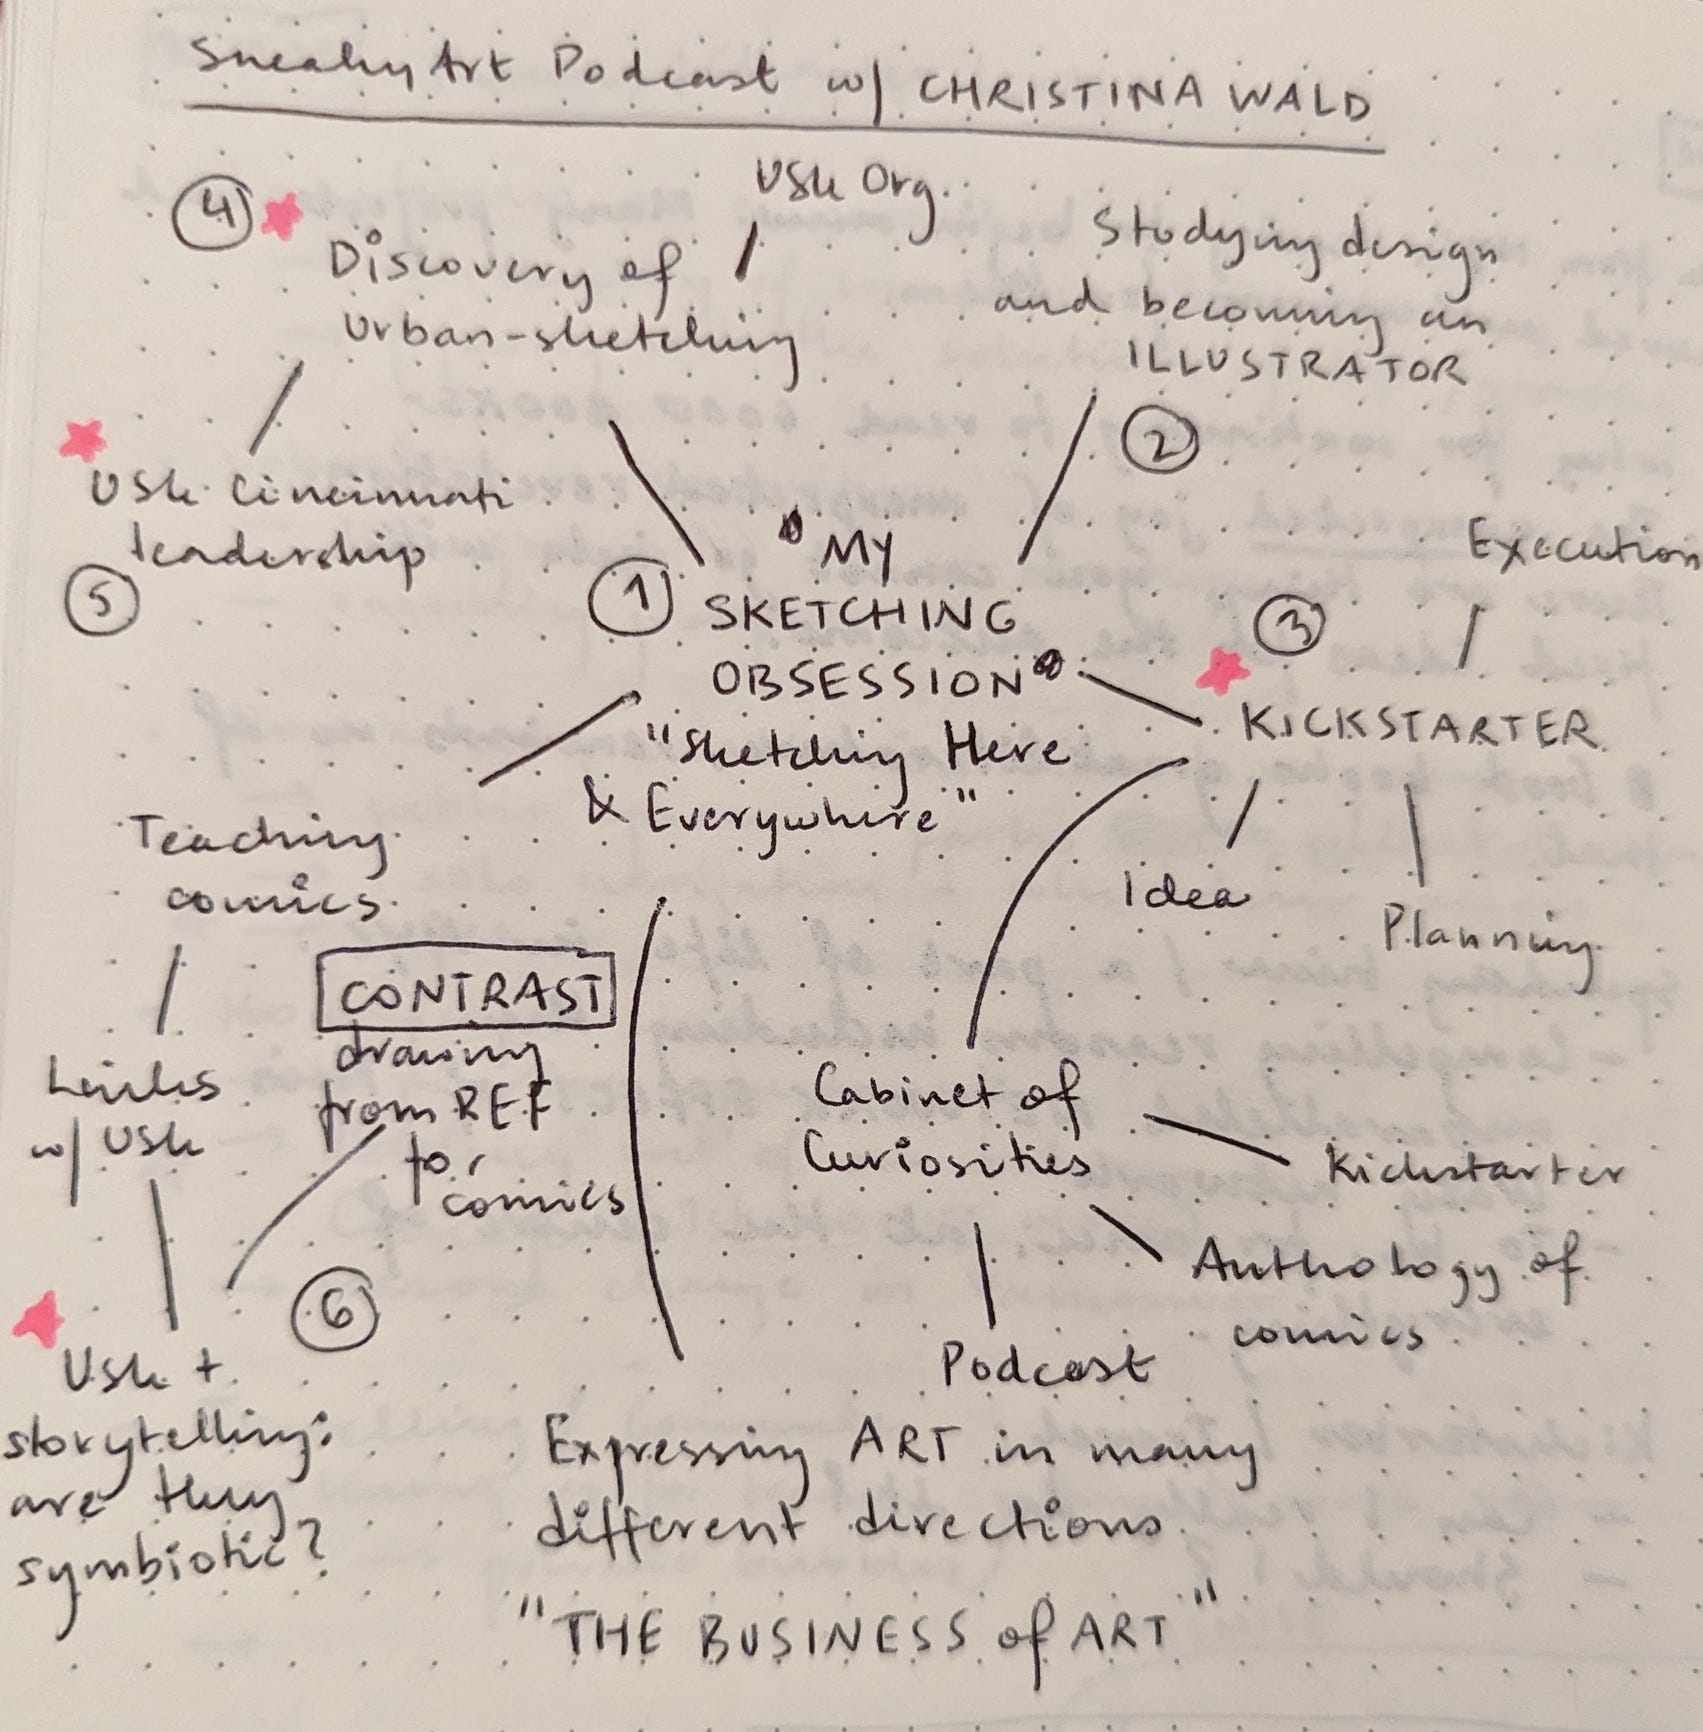 SneakyArt Podcast w/ CHRISTINA WALD
USk Org.
4
Discovery of
Urban-sketching
Studying design
and becoming an
ILLUSTRATOR
2
USk Cincinnati
leadership
5
1
"MY
SKETCHING
OBSESSION"
"Sketching Here
& Everywhere"
Execution
3
KICKSTARTER
Idea
Planning
Teaching
comics
CONTRAST
drawing
from REF
for
comics
Links
w/ USk
Cabinet of
Curiosities
Kickstarter
Anthology of
comics
Podcast
6
USk +
storytelling:
are they
symbiotic?
Expressing ART in many
different directions.
"THE BUSINESS of ART"